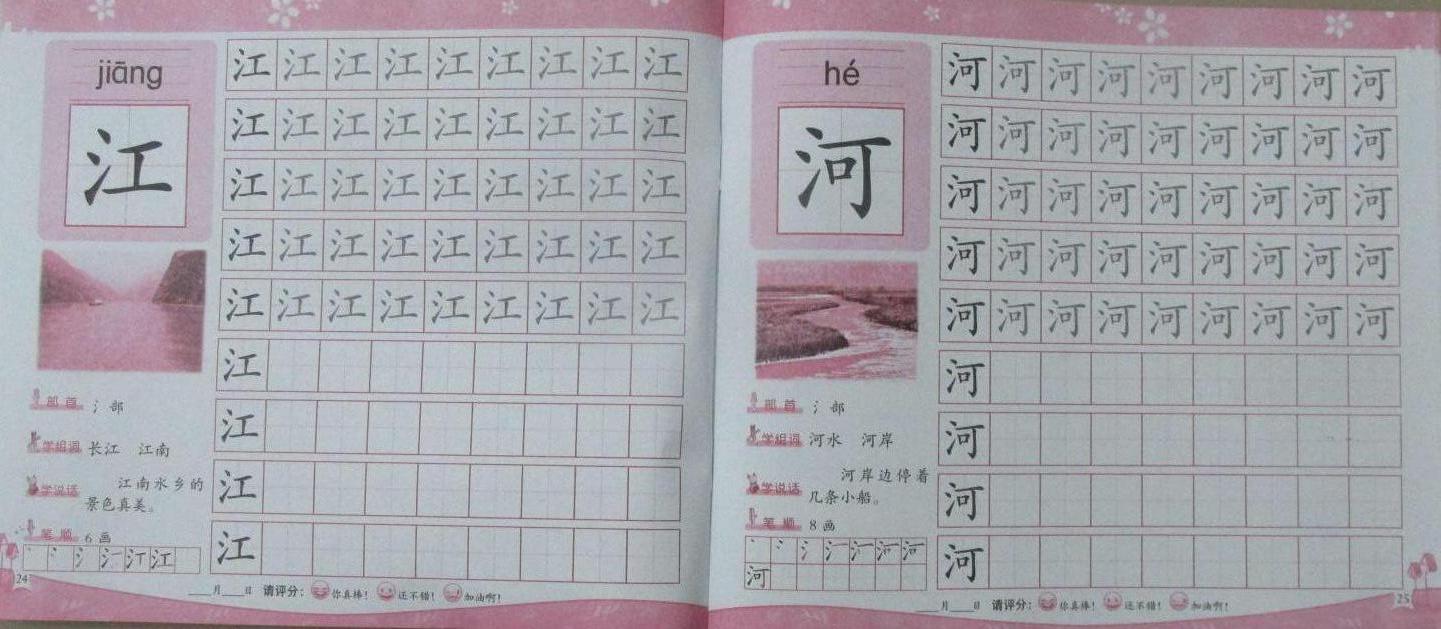 jiāng
江
江 江 江 江 江 江 江 江 江
江 江 江 江 江 江 江 江 江
江 江 江 江 江 江 江 江 江
江 江 江 江 江 江 江 江 江
江 江 江 江 江 江 江 江 江
江
江
江
江
部首 氵部
学组词 长江 江南
学说话 江南水乡的
景色真美。
笔顺 6画
丶 冫 氵 氵一 江 江
24
___月___日 请评分: 你真棒! 还不错! 加油啊!
hé
河
河 河 河 河 河 河 河 河 河
河 河 河 河 河 河 河 河 河
河 河 河 河 河 河 河 河 河
河 河 河 河 河 河 河 河 河
河 河 河 河 河 河 河 河 河
河
河
河
河
部首 氵部
学组词 河水 河岸
学说话 河岸边停着
几条小船。
笔顺 8画
河
___月___日 请评分: 你真棒! 还不错! 加油啊!
25